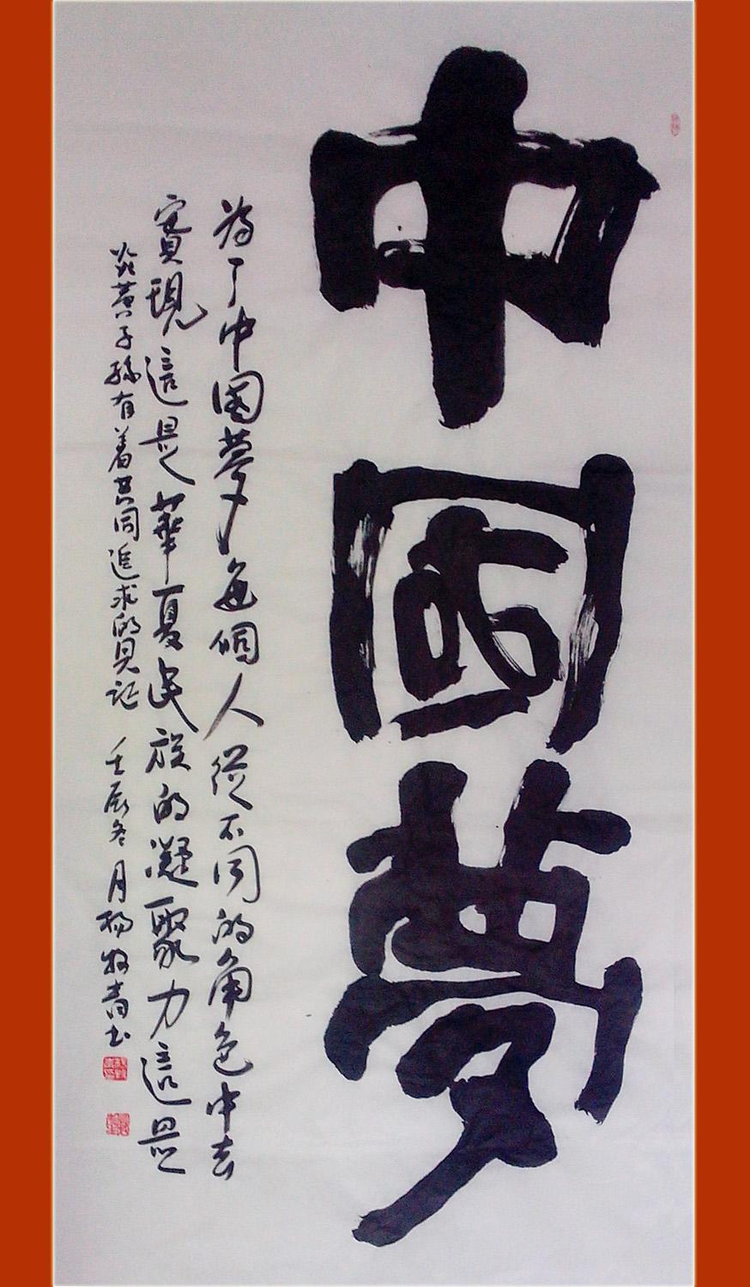 中國夢
为了中國梦每個人從不同的角色中去
實現這是華夏民族的凝聚力這是
炎黄子孫有着共同追求的見证 壬辰冬月楊牧青书